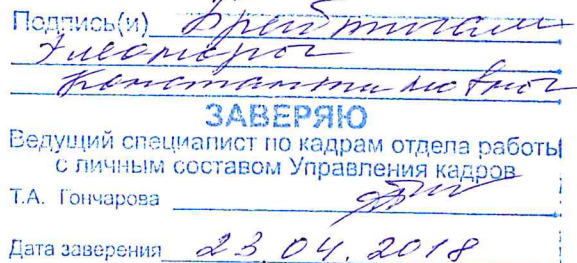 Подпись(и) Брейтигам
Элеоноры
Константиновны
ЗАВЕРЯЮ
Ведущий специалист по кадрам отдела работы
с личным составом Управления кадров
Т.А. Гончарова
Дата заверения 23.04.2018